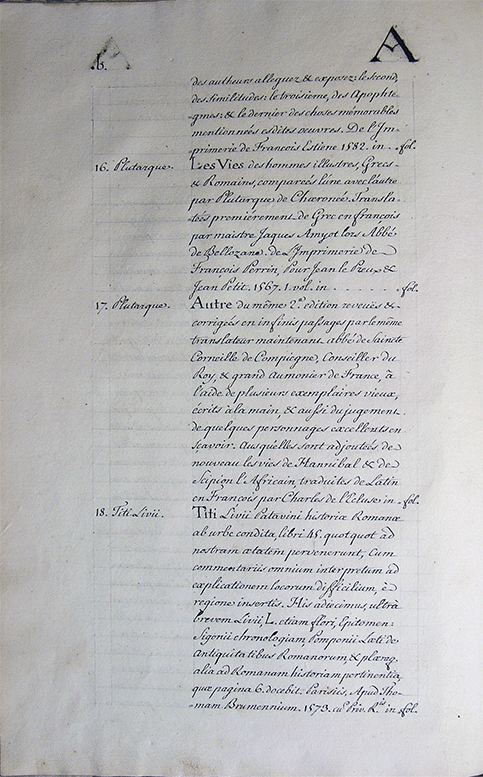 b.
A
des autheurs alleguez & exposez: le second,
des Similitudes: le troisieme, des Apophte-
gmes: & le dernier des choses mémorables
mentionneés esdites oeuvres. De l'Im-
primerie de François Estiene 1582. in - fol.
16. Plutarque. Les Vies des hommes illustres, Grecs
& Romains, compareés l'une avec l'autre
par Plutarque de Chæroneé. Transla-
teés premiérement de Grec en françois
par maistre Jaques Amyot lors Abbé
de Bellozane. de L'Imprimerie de
François Perrin, Pour Jean le Preux &
Jean Petit. 1567. 1. vol. in . . . . . . fol.
17. Plutarque. Autre du même 2.e edition reveuës &
corrigeés en infinis passages par le même
translateur maintenant abbé de Saincte
Corneille de Compiegne, Conseiller du
Roy, & grand Aumonier de France, à
l'aide de plusieurs exemplaires vieux,
écrits à la main, & aussi du jugement
de quelques personnages excellents en
sçavoir. Ausquelles sont adjouteés de
nouveau les vies de Hannibal & de
Scipion l'Africain, traduites de Latin
en François par Charles de l'Ecluse in - fol.
18. Titi Livii. Titi Livii Patavini historiæ Romanæ
ab urbe condita, libri 45. quotquot ad
nostram ætatem pervenerunt, Cum
commentariis omnium interpretum ad
explicationem locorum difficilium, è
regione insertis. His adiecimus, ultrà
brevem Livii, L. etiam flori, Epitomen:
Sigonii chronologiam, Pomponii Læti de
Antiquitatibus Romanorum, & plæraq.
alia ad Romanam historiam pertinentia,
quæ pagina 6. docebit. Parisiis, Apud Tho-
mam Brumennium. 1573. cũ Priv. R.is in fol.